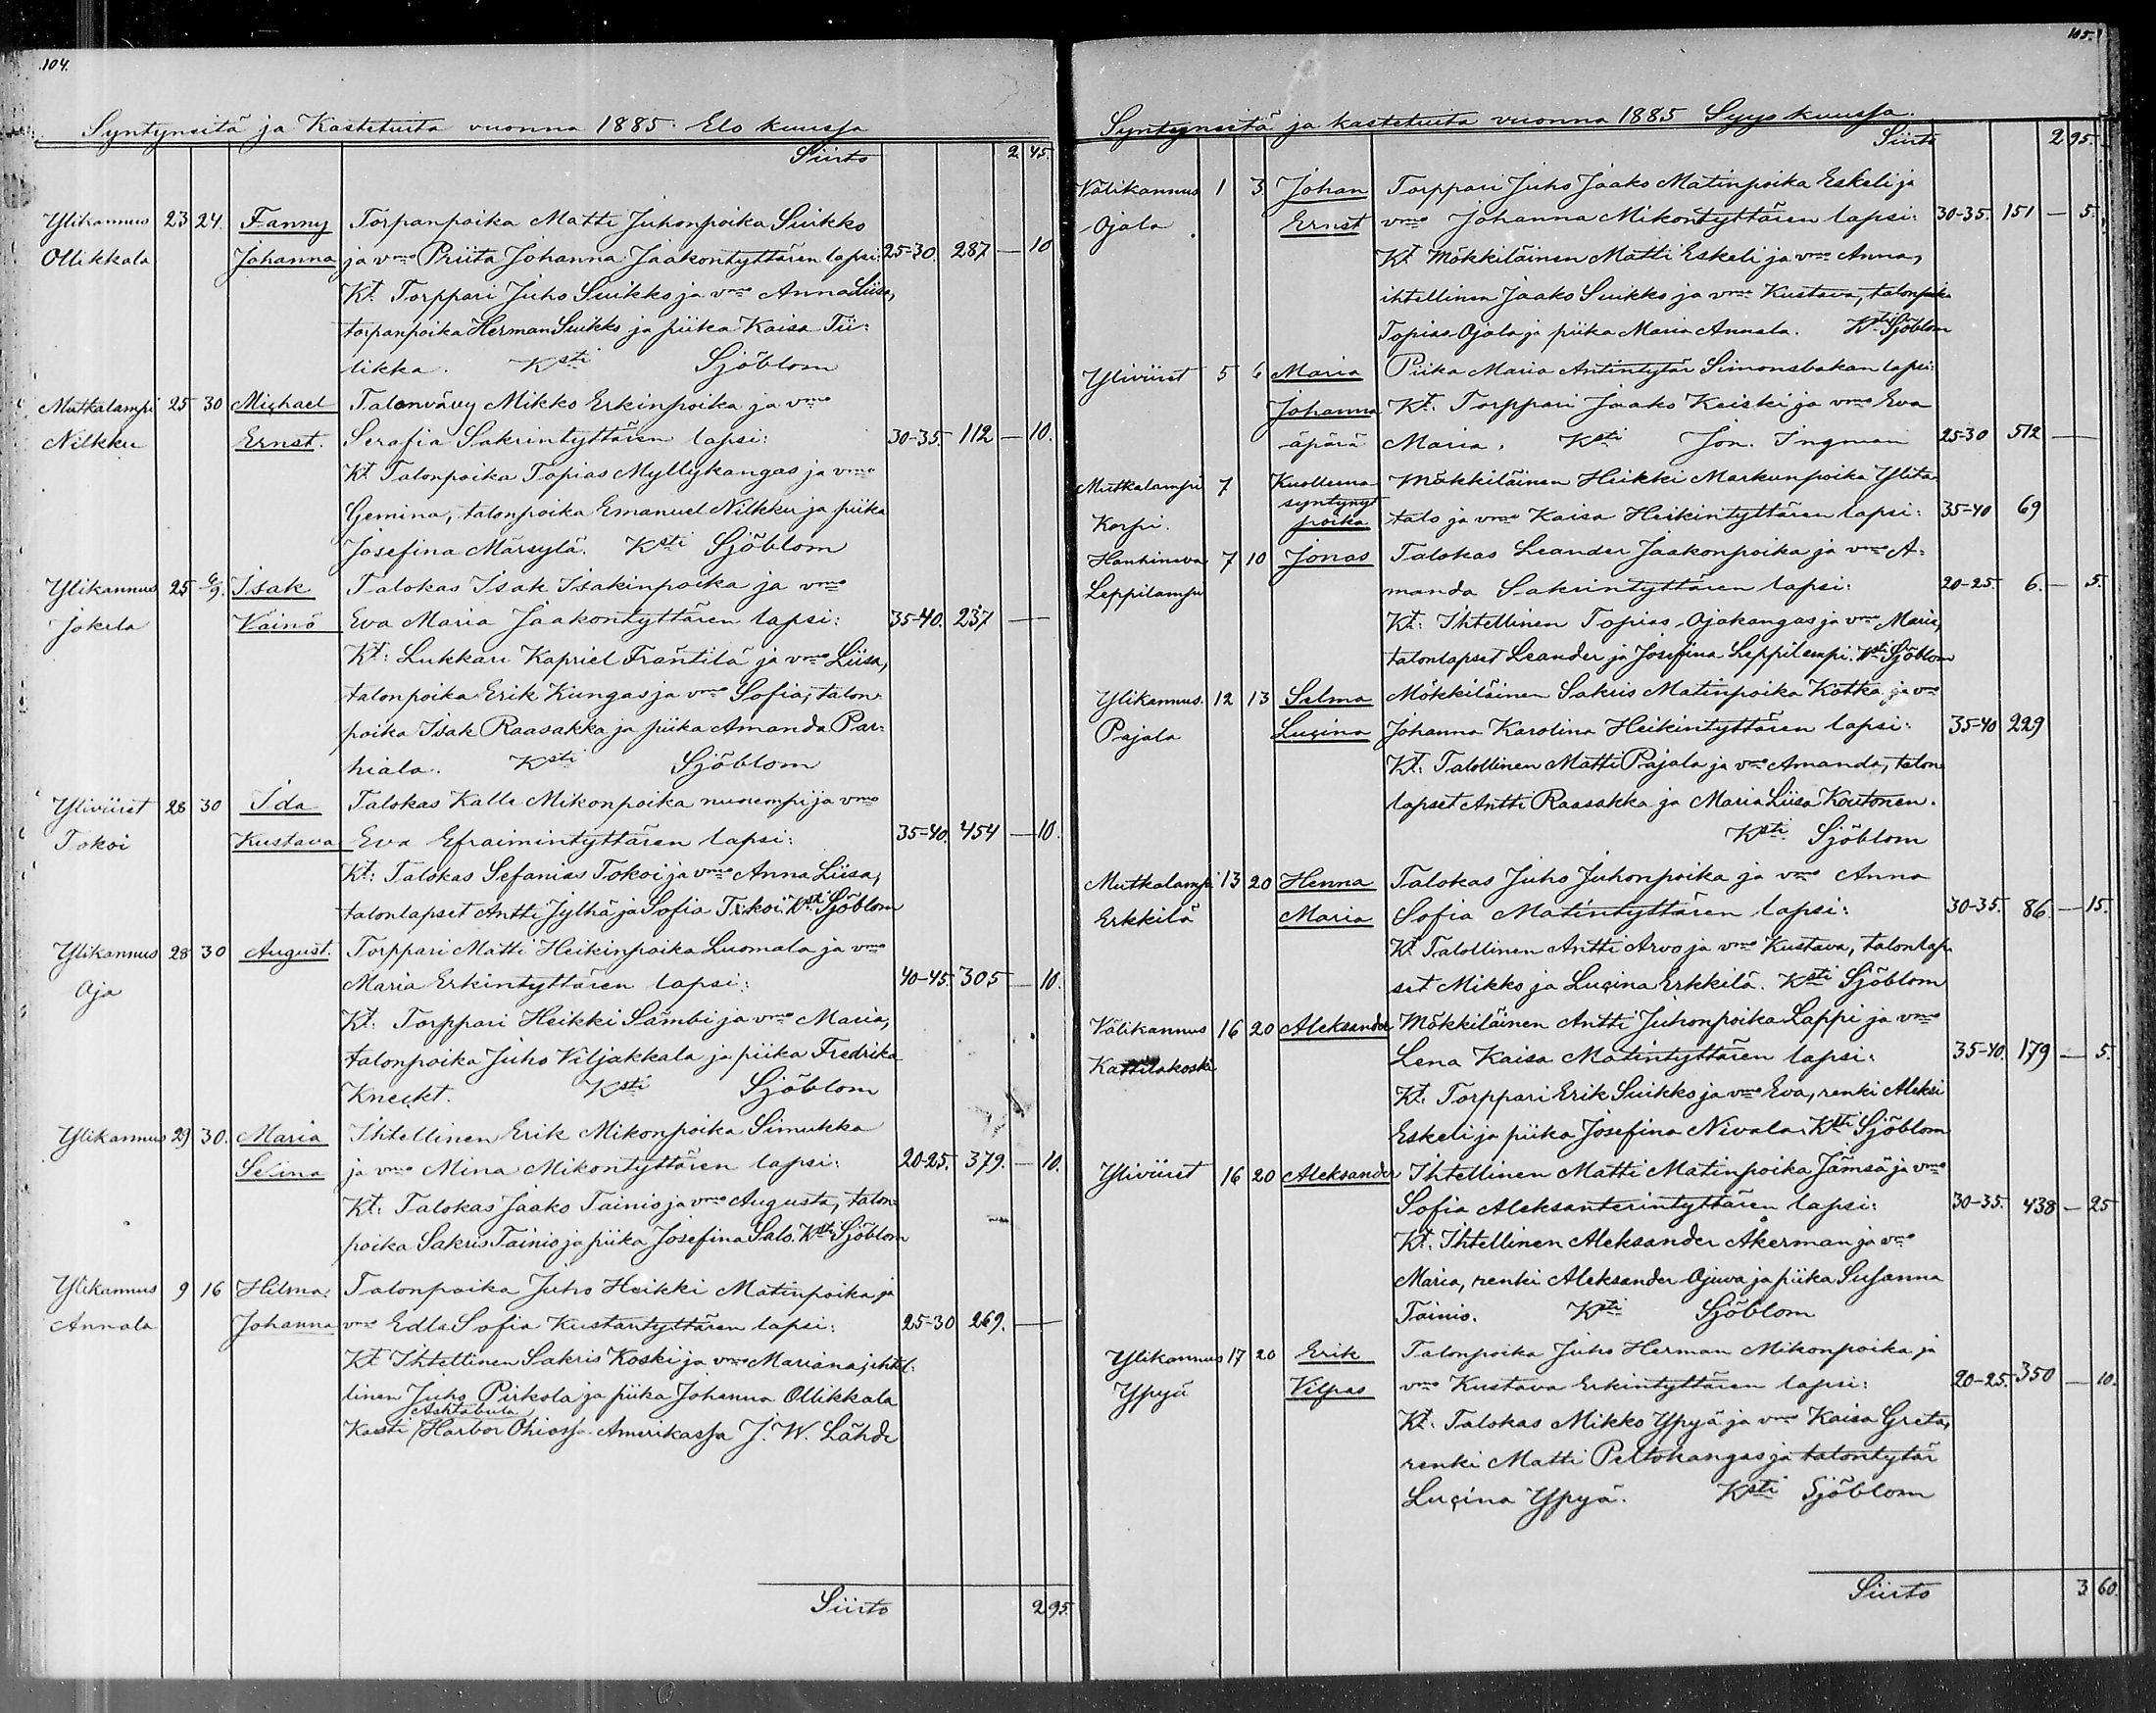 104.
Syntyneitä ja Kastetuita vuonna 1885. Elo kuussa
Siirto 2. 45.
Ylikannus 23 24. Fanny Torpanpoika Matti Juhonpoika Suikko
Ollikkala Johanna ja vmo Priita Johanna Jaakontyttären lapsi: 25-30. 287 — 10
Kt. Torppari Juho Suikko ja vmo Anna Liisa,
torpanpoika Herman Suikko ja piika Kaisa Tii-
likka. Ksti Sjöblom
Mutkalampi 25 30 Michael Talonvävy Mikko Erkinpoika ja vmo
Nilkku Ernst. Serafia Sakrintyttären lapsi: 30-35. 112 — 10.
Kt. Talonpoika Topias Myllykangas ja vmo
Gemina, talonpoika Emanuel Nilkku ja piika
Josefina Märsylä. Ksti Sjöblom
Ylikannus 25 6/9. Isak Talokas Isak Isakinpoika ja vmo
Jokela Väinö Eva Maria Jaakontyttären lapsi: 35-40. 237 —
Kt: Lukkari Kapriel Fräntilä ja vmo Liisa,
talonpoika Erik Kungas ja vmo Sofia, talon-
poika Isak Raasakka ja piika Amanda Par-
hiala. Ksti Sjöblom
Yliviiret 28 30 Ida Talokas Kalle Mikonpoika nuorempi ja vmo
Tokoi Kustava Eva Efraimintyttären lapsi: 35-40. 454 — 10.
Kt: Talokas Sefanias Tokoi ja vmo Anna Liisa,
talonlapset Antti Jylhä ja Sofia Tokoi. Ksti Sjöblom
Ylikannus 28 30 August. Torppari Matti Heikinpoika Luomala ja vmo
Oja Maria Erkintyttären lapsi: 40-45. 305 — 10.
Kt: Torppari Heikki Sämbi ja vmo Maria,
talonpoika Juho Viljakkala ja piika Fredrika
Kneckt. Ksti Sjöblom
Ylikannus 29 30. Maria Ihtellinen Erik Mikonpoika Simukka
Selina ja vmo Mina Mikontyttären lapsi: 20-25. 379. — 10.
Kt: Talokas Jaako Tainio ja vmo Augusta, talon-
poika Sakris Tainio ja piika Josefina Salo. Ksti Sjöblom
Ylikannus 9 16 Hilma Talonpoika Juho Heikki Matinpoika ja
Annala Johanna vmo Edla Sofia Kustantyttären lapsi: 25-30 269. —
Kt Ihtellinen Sakris Koski ja vmo Mariana, ihtel-
linen Juho Pirkola ja piika Johanna Ollikkala
Ashtabula
Kasti Harbor Ohiossa Amerikassa J. W. Lähde
Siirto 2 95.
105.
Syntyneitä ja kastetuita vuonna 1885 Syys kuussa.
Siirto 2 95.
Välikannus 1 3. Johan Torppari Juho Jaako Matinpoika Eskeli ja
Ojala Ernst vmo Johanna Mikontyttären lapsi: 30-35. 151 — 5.
Kt. Mökkiläinen Matti Eskeli ja vmo Anna,
ihtellinen Jaako Suikko ja vmo Kustava, talonpoika
Topias Ojala ja piika Maria Annala. Ksti Sjöblom
Yliviiret 5 6 Maria Piika Maria Antintytär Simonsbakan lapsi:
Johanna Kt: Torppari Jaako Keiski ja vmo Eva
äpärä Maria. Ksti Jon. Ingman 25-30 512 —
Mutkalampi 7 Kuolleena Mökkiläinen Heikki Markunpoika Ylita-
syntynyt
Korpi. poika talo ja vmo Kaisa Heikintyttären lapsi: 35-40 69
Hanhineva 7 10 Jonas Talokas Leander Jaakonpoika ja vmo A-
Leppilampi manda Sakrintyttären lapsi: 20-25. 6. — 5.
Kt: Ihtellinen Topias Ojakangas ja vmo Maria,
talonlapset Leander ja Josefina Leppilampi. Ksti Sjöblom
Ylikannus. 12 13 Selma Mökkiläinen Sakris Matinpoika Kotka ja vmo
Pajala Lucina Johanna Karolina Heikintyttären lapsi: 35-40 229
Kt: Talollinen Matti Pajala ja vmo Amanda, talon-
lapset Antti Raasakka ja Maria Liisa Koutonen.
Ksti Sjöblom
Mutkalampi 13 20 Henna Talokas Juho Juhonpoika ja vmo Anna
Erkkilä Maria Sofia Matintyttären lapsi: 30-35. 86. — 15.
Kt. Talollinen Antti Arvo ja vmo Kustava, talonlap-
set Mikko ja Lucina Erkkilä. Ksti Sjöblom
Välikannus 16 20 Aleksander Mökkiläinen Antti Juhonpoika Lappi ja vmo
Kattilakoski Lena Kaisa Matintyttären lapsi: 35-40. 179 — 5.
Kt: Torppari Erik Suikko ja vmo Eva, renki Aleksi
Eskeli ja piika Josefina Nivala. Ksti Sjöblom
Yliviiret 16 20 Aleksander Ihtellinen Matti Matinpoika Jämsä ja vmo
Sofia Aleksanterintyttären lapsi: 30-35. 438 — 25
Kt: Ihtellinen Aleksander Åkerman ja vmo
Maria, renki Aleksander Ojuva ja piika Susanna
Tainio. Ksti Sjöblom
Ylikannus 17 20 Erik Talonpoika Juho Herman Mikonpoika ja
Ypyä Vilpas vmo Kustava Erkintyttären lapsi: 20-25. 350 — 10.
Kt: Talokas Mikko Ypyä ja vmo Kaisa Greta,
renki Matti Peltokangas ja talontytär
Lucina Ypyä. Ksti Sjöblom
Siirto 3 60.